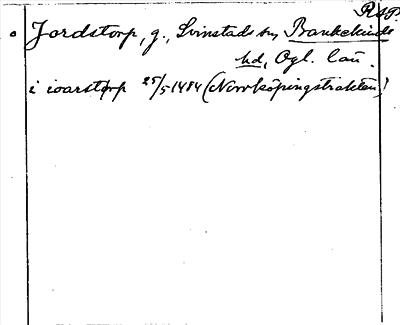 RAP.
Jordstorp, g., Svinstads sn, Bankekinds
hd, Ögl. län.
i ioarstorp 25/5 1484 (Norrköpingstrakten)